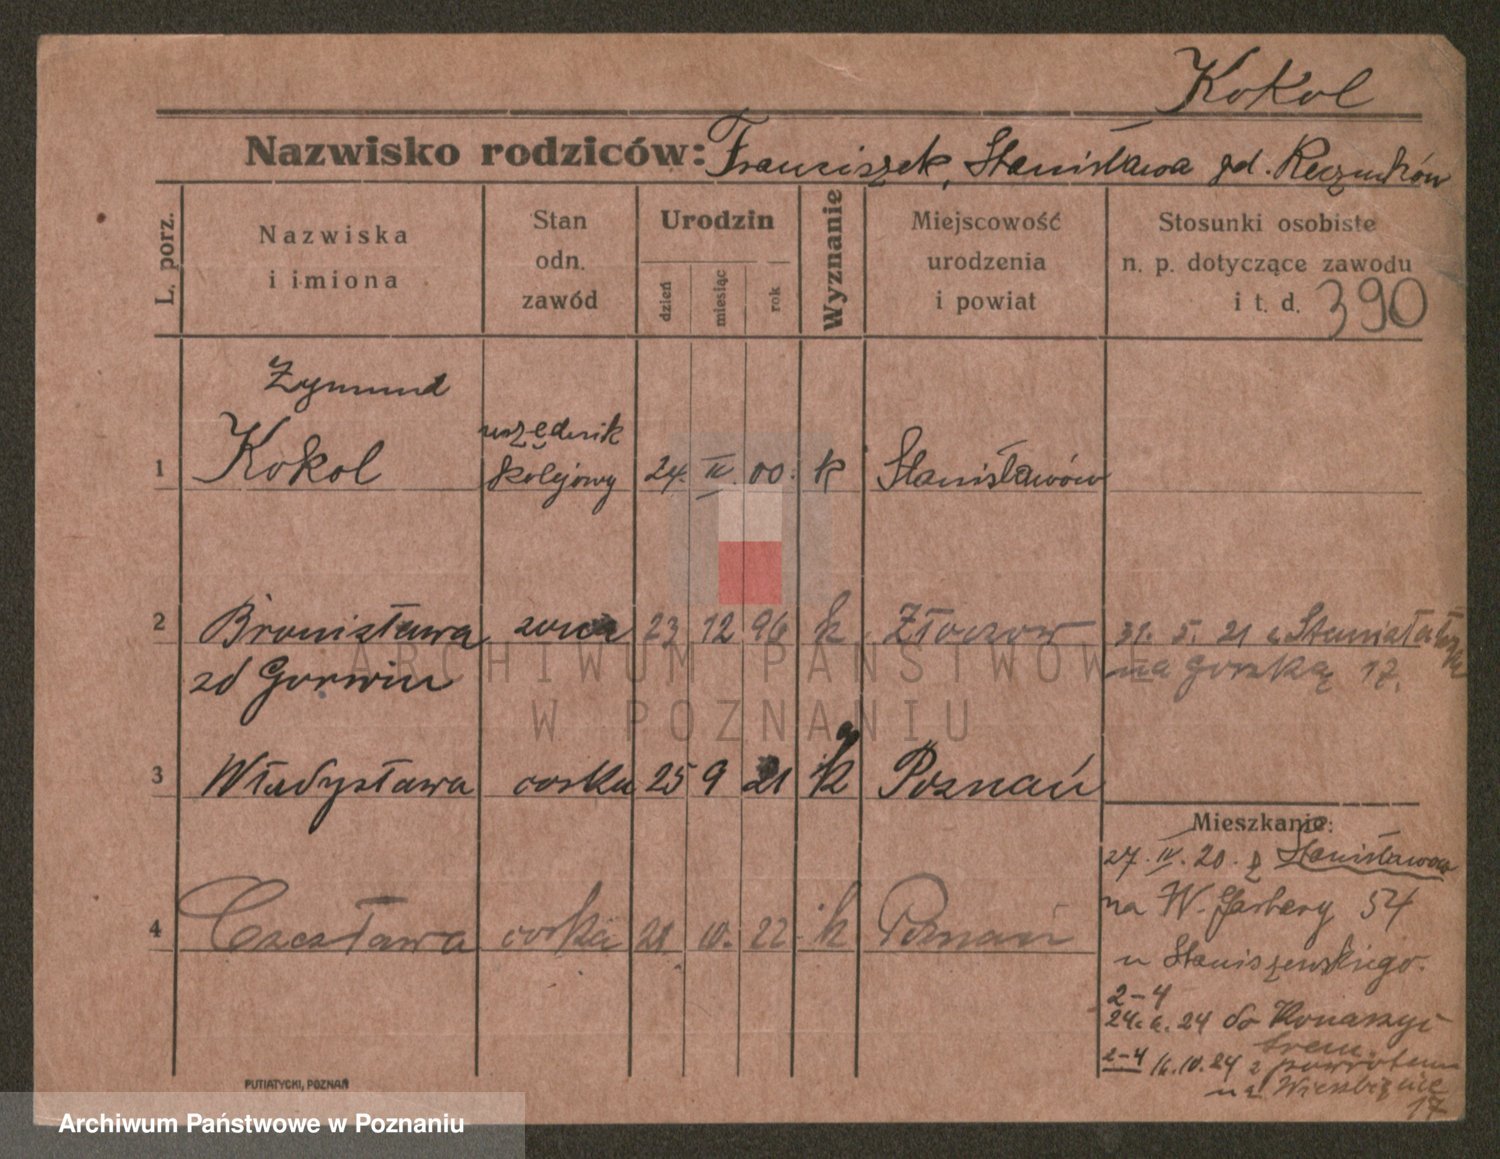 Kokol
Nazwisko rodziców: Franciszek, Stanisława zd.
L. porz.
Nazwiska i imiona
Stan odn. zawód
Urodzin
dzień
miesiąc
rok
Wyznanie
Miejscowość urodzenia i powiat
Stosunki osobiste n. p. dotyczące zawodu i t. d. 390
Zygmund
1 Kokol urzędnik kolejowy 24. IV. 00. k Stanisławów
2 Bronisława żona 23 12 96 k Złoczow 31. 5. 21
zd Gorwin na gorską 17.
3 Władysława corka 25 9 21 k Poznań
Mieszkanie:
27. IV. 20. z Stanisławow
na W. Garbary 54
4 Czesława corka 21 10. 22 k Poznań
u Staniszewskiego.
2-4
24. 6. 24 do
2-4 16. 10. 24 z powrotem
na Wierzbięcice
17
PUTIATYCKI, POZNAŃ
ARCHIWUM PAŃSTWOWE
W POZNANIU
Archiwum Państwowe w Poznaniu